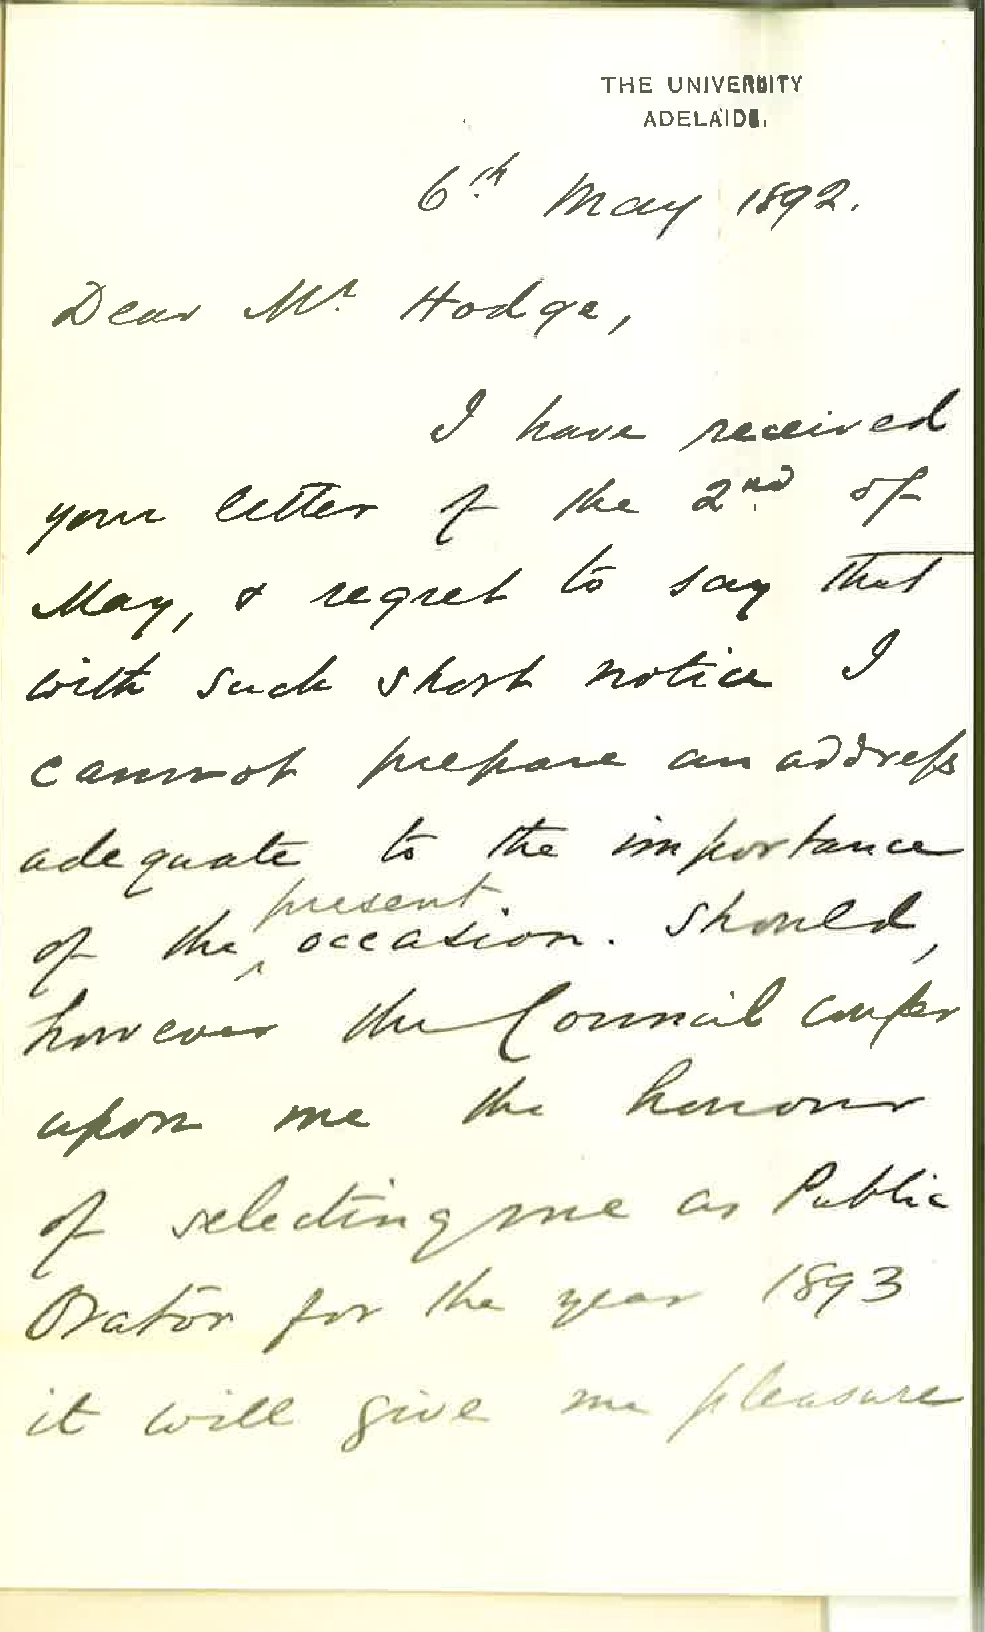 THE UNIVERSITY
ADELAIDE.
6th May 1892.
Dear Mr. Hodge,
I have received
your letter of the 2nd of
May, & regret to say that
with such short notice I
cannot prepare an address
adequate to the importance
of the present occasion. Should,
however the Council confer
upon me the honour
of selecting me as Public
Orator for the year 1893
it will give me pleasure